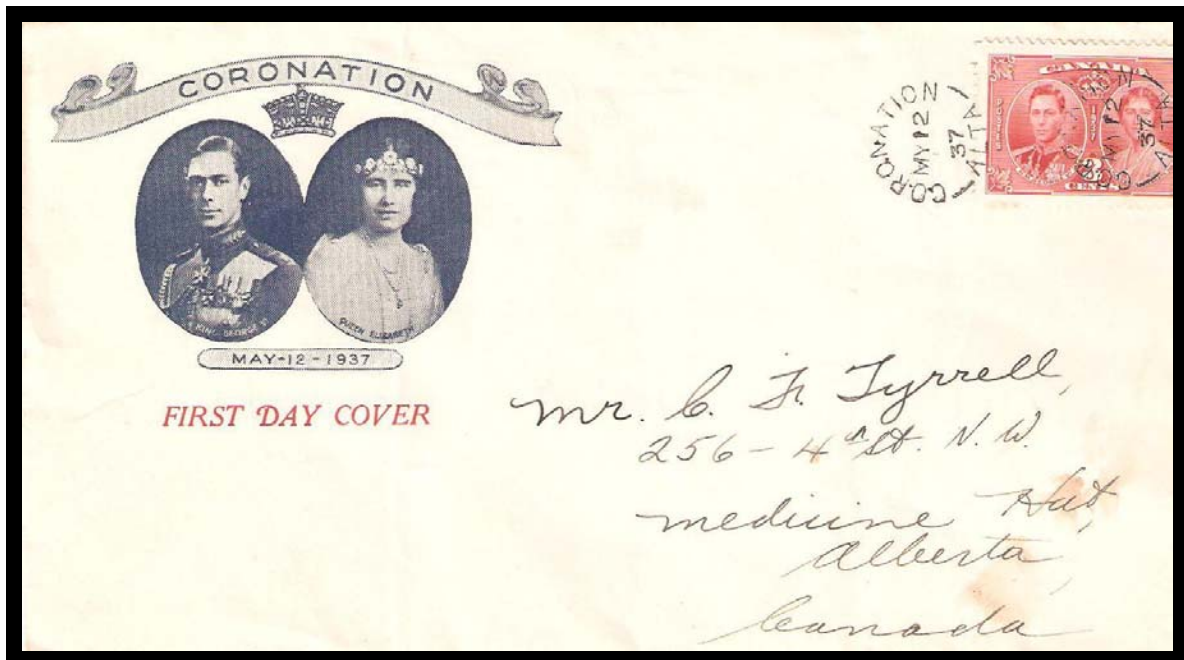 CORONATION
KING GEORGE VI
QUEEN ELIZABETH
MAY-12-1937
FIRST DAY COVER
CORONATION
MY 12
37
ALTA
CANADA
POSTES
1937
3
CENTS
MY 12
37
ALTA
Mr. C. F. Tyrrell,
256 - 4th St. N. W.
Medicine Hat,
Alberta,
Canada